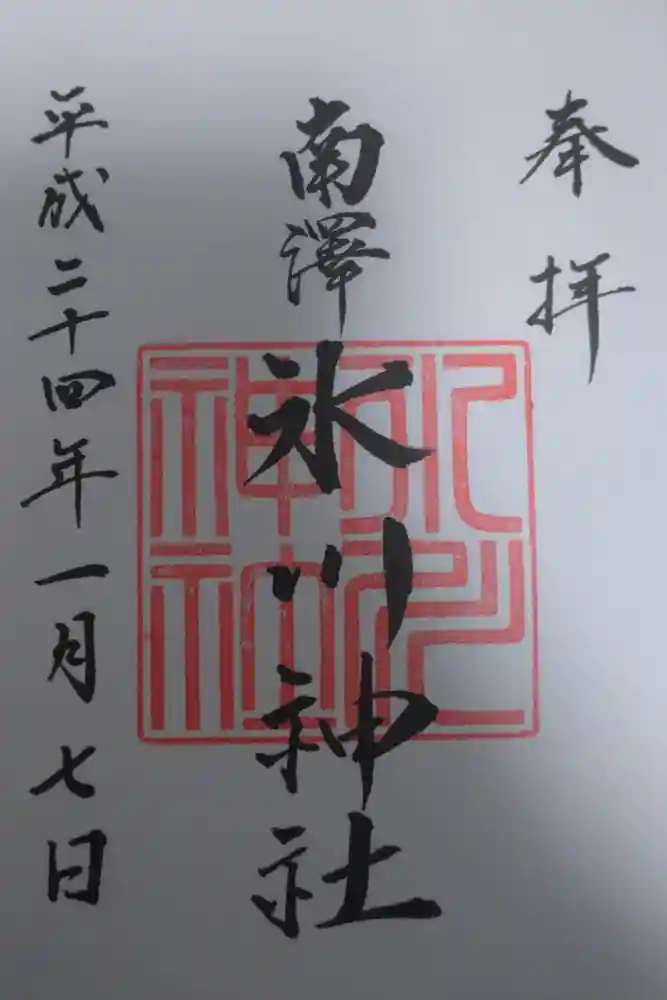 奉拝
南澤氷川神社
氷川神社
平成二十四年一月七日